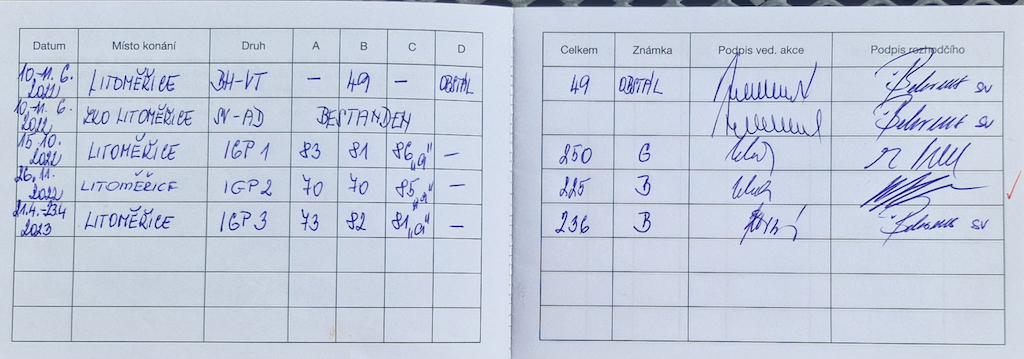 Datum Místo konání Druh A B C D Celkem Známka Podpis ved. akce Podpis rozhodčího
10.-11. 6. 2022 LITOMĚŘICE BH-VT – 49 – OBSTÁL 49 OBSTÁL
10.-11. 6. 2022 ZKO LITOMĚŘICE SV-AD BESTANDEN
15.10. 2022 LITOMĚŘICE IGP 1 83 81 86 „a" – 250 G
26.11. 2022 LITOMĚŘICE IGP 2 70 70 85 „a" – 225 B
21.4.-23.4 2023 LITOMĚŘICE IGP 3 73 82 81 „a" – 236 B